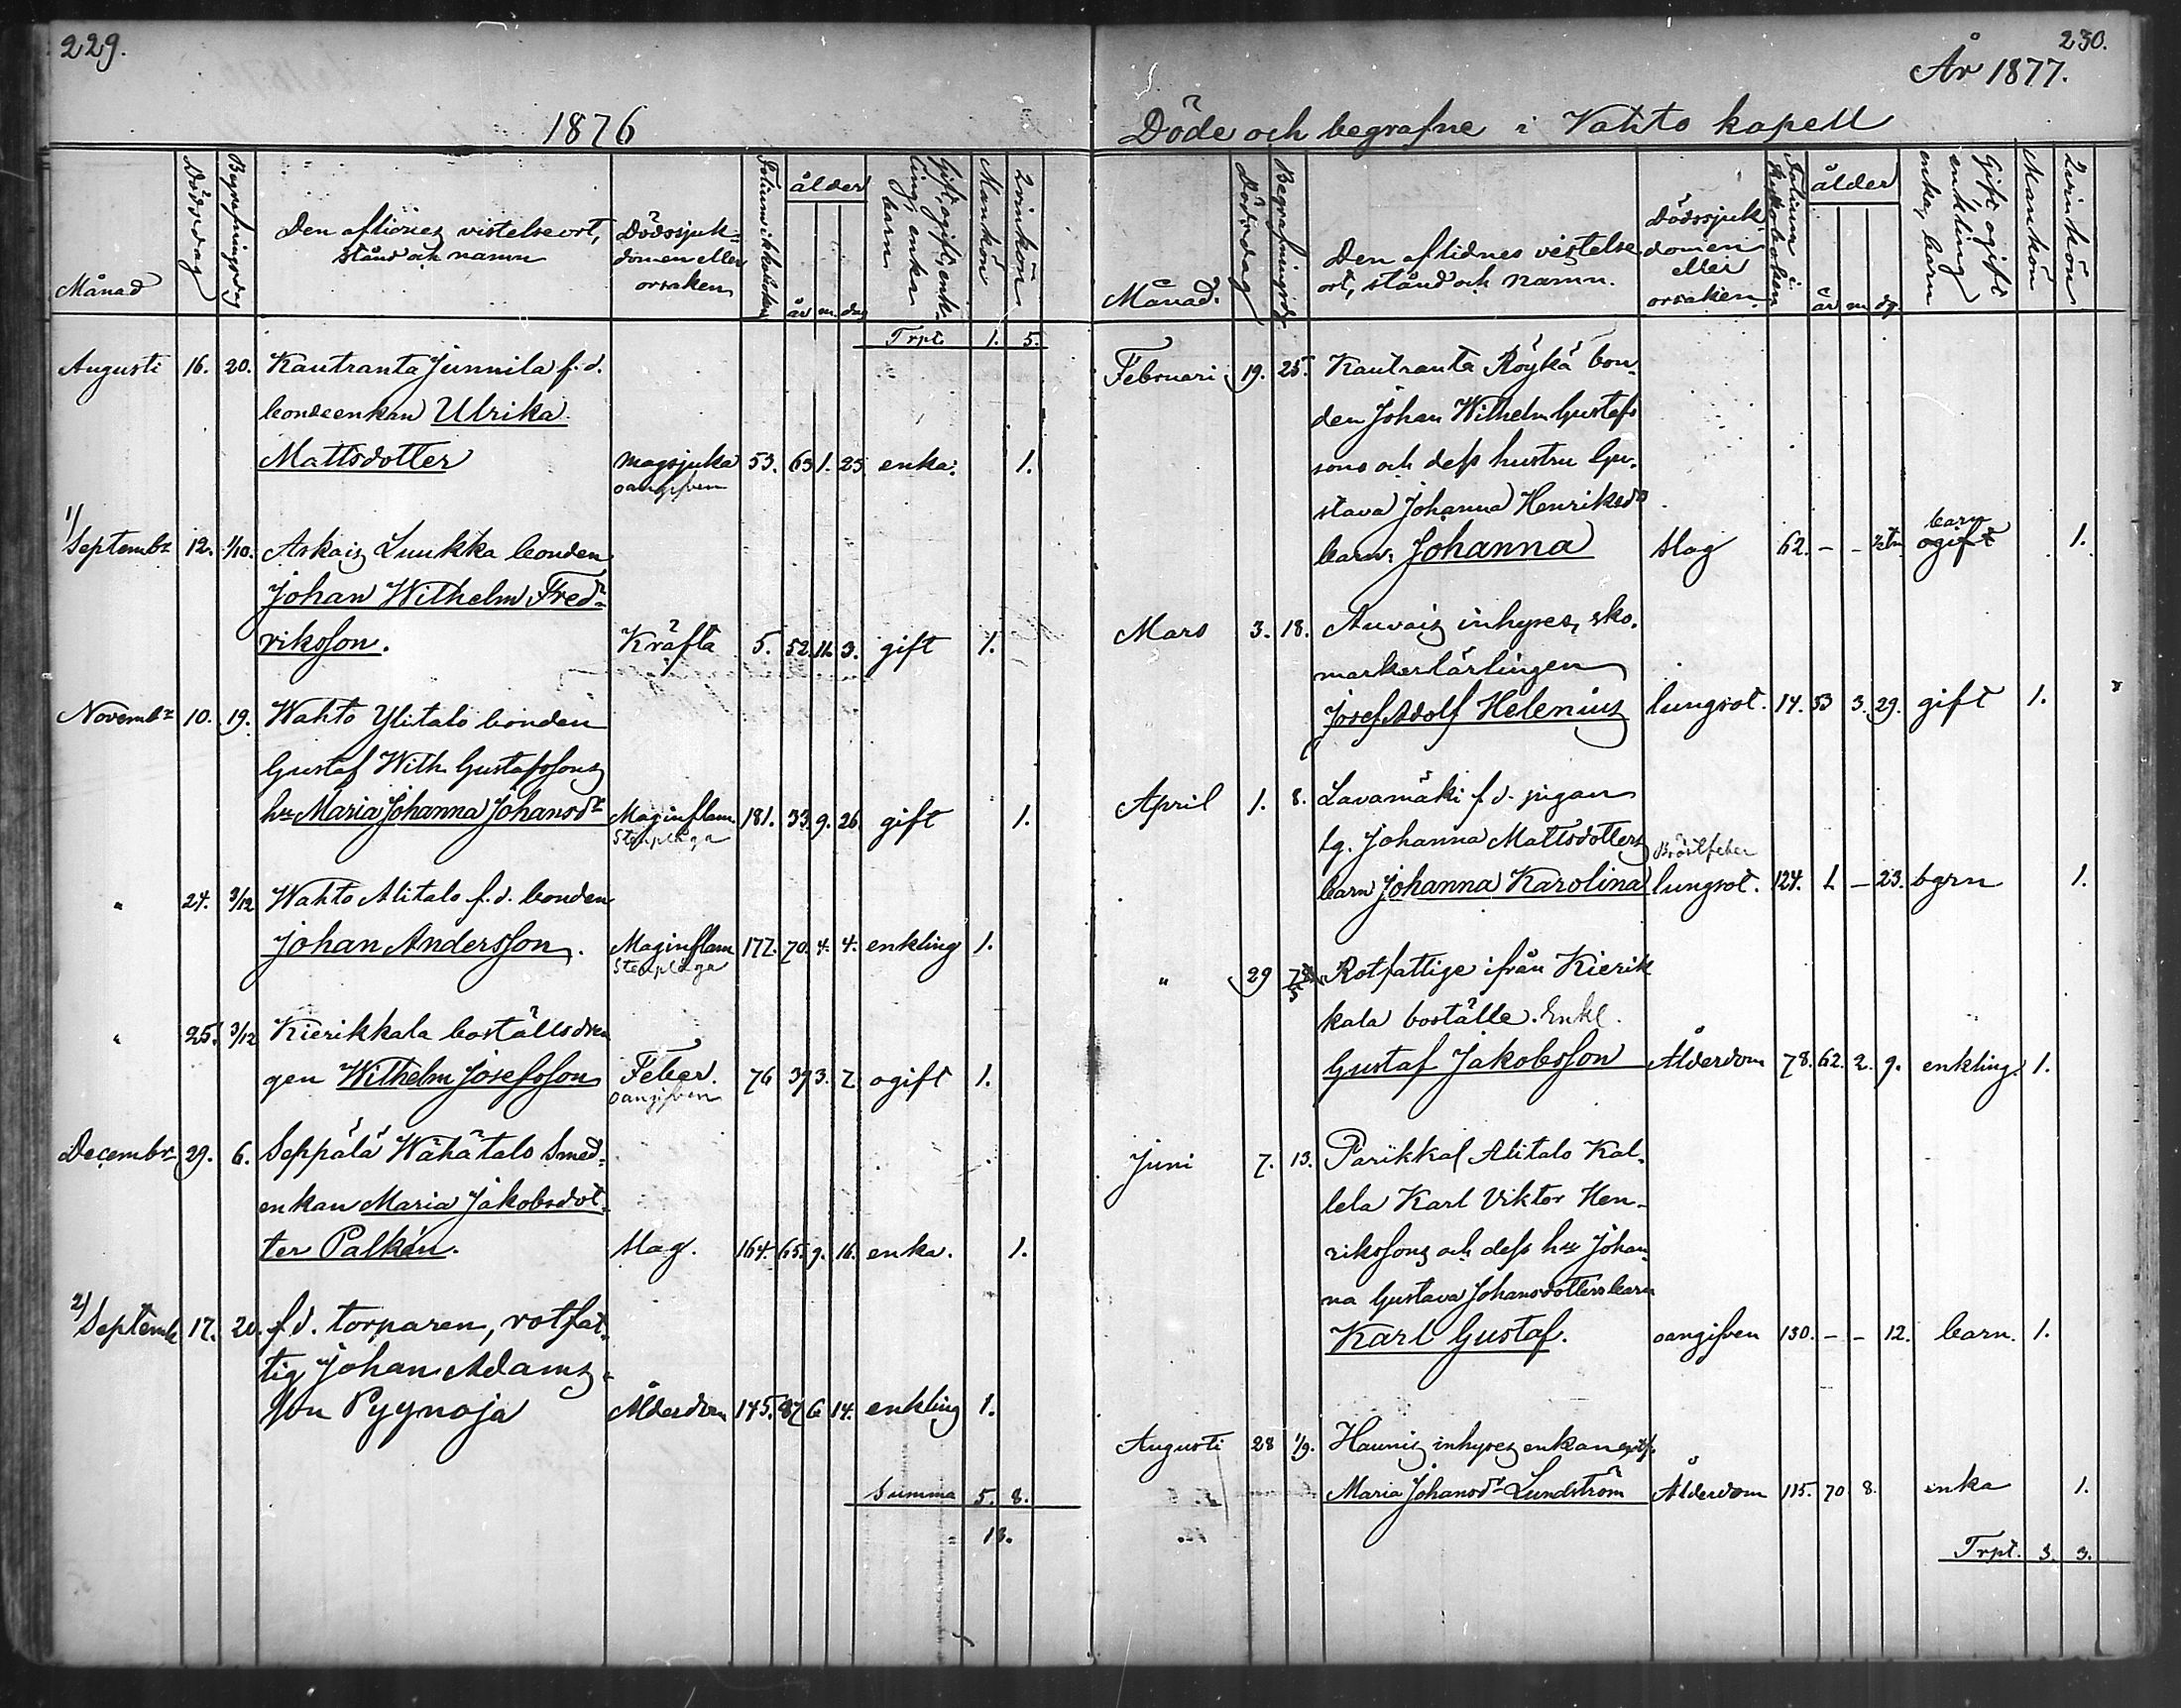 229.
1876
Månad
Dödsdag
Begrafningsdag
Den aflidnes vistelseort,
stånd och namn
Dödssjuk-
domen eller
orsaken
ålder
år m. dag
Gift, ogift, enk-
ling, enka
barn
Mankön
Qvinkön
Trpt. 1. 5.
Augusti 16. 20. Kautranta Junnila f. d.
bondeenkan Ulrika
Mattsdotter magsjuka 53. 63 1. 23. enka. 1.
oangifven
1/
Septembr 12. 1/10. Askais Luukka bonden
Johan Wilhelm Fred-
riksson. Kräfta 5. 52. 11. 3. gift 1.
Novembr 10. 19. Wahto Ylitalo bonden
Gustaf Wilh. Gustafssons
hu Maria Johanna Johansdr Maginflam 181. 33. 9. 26. gift 1.
Stenplåga
" 24. 3/12 Wahto Alitalo f. d. bonden
Johan Andersson. Maginflam 177. 70. 4. 4. enkling 1.
Stenplåga
" 25. 3/12 Kierikkala boställsdrän
gen Wilhelm Josefsson Feber. 76 39 3. 7. ogift 1.
oangifven
Decembr 29. 6. Seppälä Wähätalo Smed-
enkan Maria Jakobsdot-
ter Palkén. slag. 164. 65. 9. 16. enka. 1.
2/
Septemb 17. 20. f. d. torparen, rotfat-
tig Johan Adams-
son Pyynoja Ålderdom 145. 87 6 14. enkling 1.
Summa 5. 8.
13.
230.
År 1877.
Döde och begrafne i Vahto kapell
Månad.
Dödsdag
Begrafningsdg
Den aflidnes vistelse
ort, stånd och namn.
Dödssjuk
domen
eller
orsaken
Folium i
Kyrkoboken
ålder
år m dg.
Gift ogift
enkling
enka, barn
Mankön
Qvinkön
Februari 19. 25. Kautranta Röykä bon-
den Johan Wilhelm Gustafs
sons och dess hustru Gu-
stava Johanna Henriksdr
barn Johanna slag 62. – – barn 1.
ogift
Mars 3. 18. Auvais inhyses, sko-
makerlärlingen
Josef Adolf Helenius lungsot. 14. 53 3. 29. gift 1.
April 1. 8. Lavamäki f. d. pigan
lg. Johanna Mattsdotters
Bröstfeber
barn Johanna Karolina lungsot. 124. 1 – 23. barn 1.
" 29 Rotfattige ifrån Kierik
kala boställe. Enkl.
Gustaf Jakobsson Ålderdom 78. 62. 2. 9. enkling. 1.
Juni 7. 13. Parikkal Alitalo Kal-
lela Karl Viktor Hen-
rikssons och dess hu Johan-
na Gustava Johansdotters barn
Karl Gustaf. oangifven 130. – – 12. barn. 1.
Augusti 28 1/9. Haunis inhyses enkan rotf.
Maria Johansdr Lundström Ålderdom 115. 70 8. enka 1.
Trpt. 3. 3.